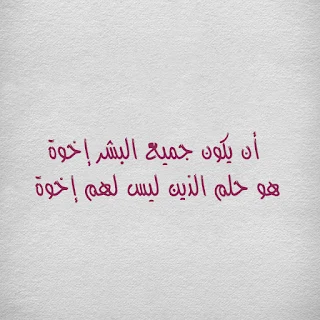 أن يكون جميع البشر إخوة
هو حلم الذين ليس لهم إخوة